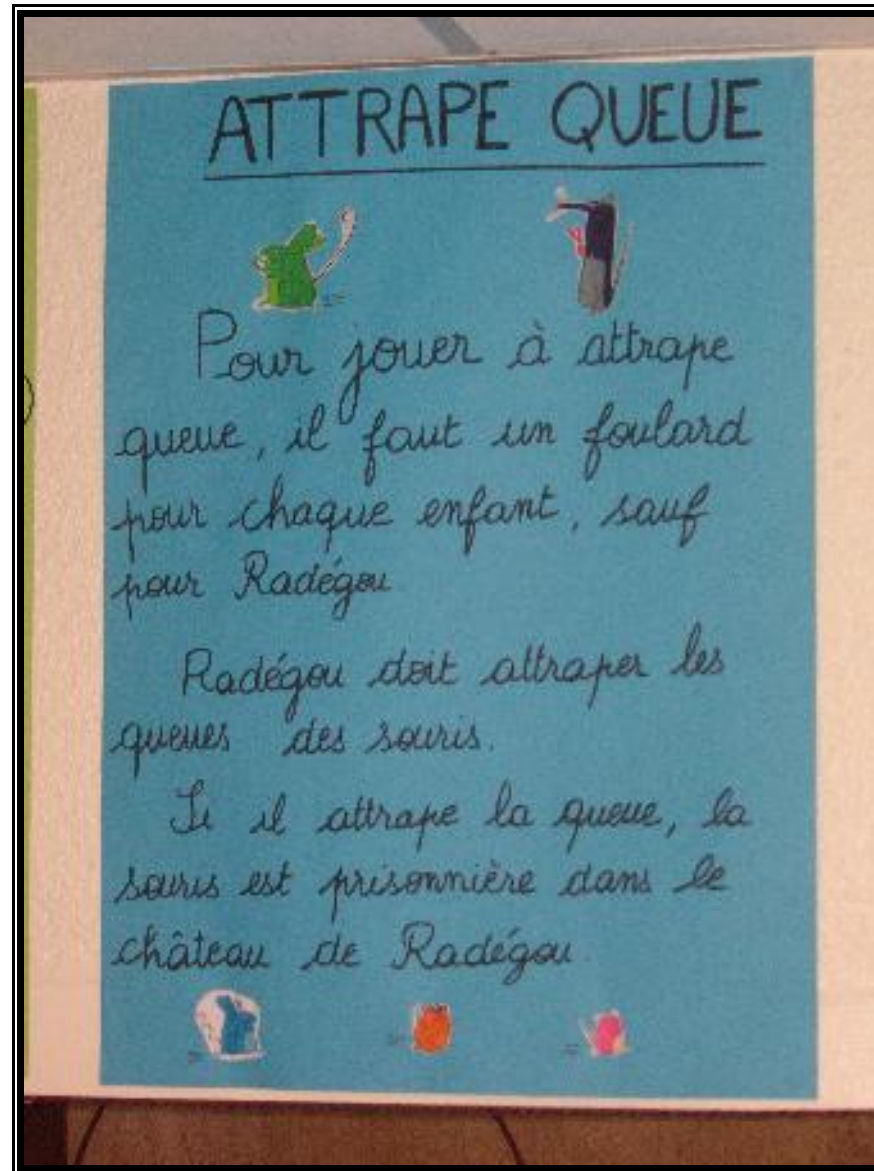 ATTRAPE QUEUE
Pour jouer à attrape
queue, il faut un foulard
pour chaque enfant, sauf
pour Radégou
Radégou doit attraper les
queues des souris.
Si il attrape la queue, la
souris est prisonnière dans le
château de Radégou.